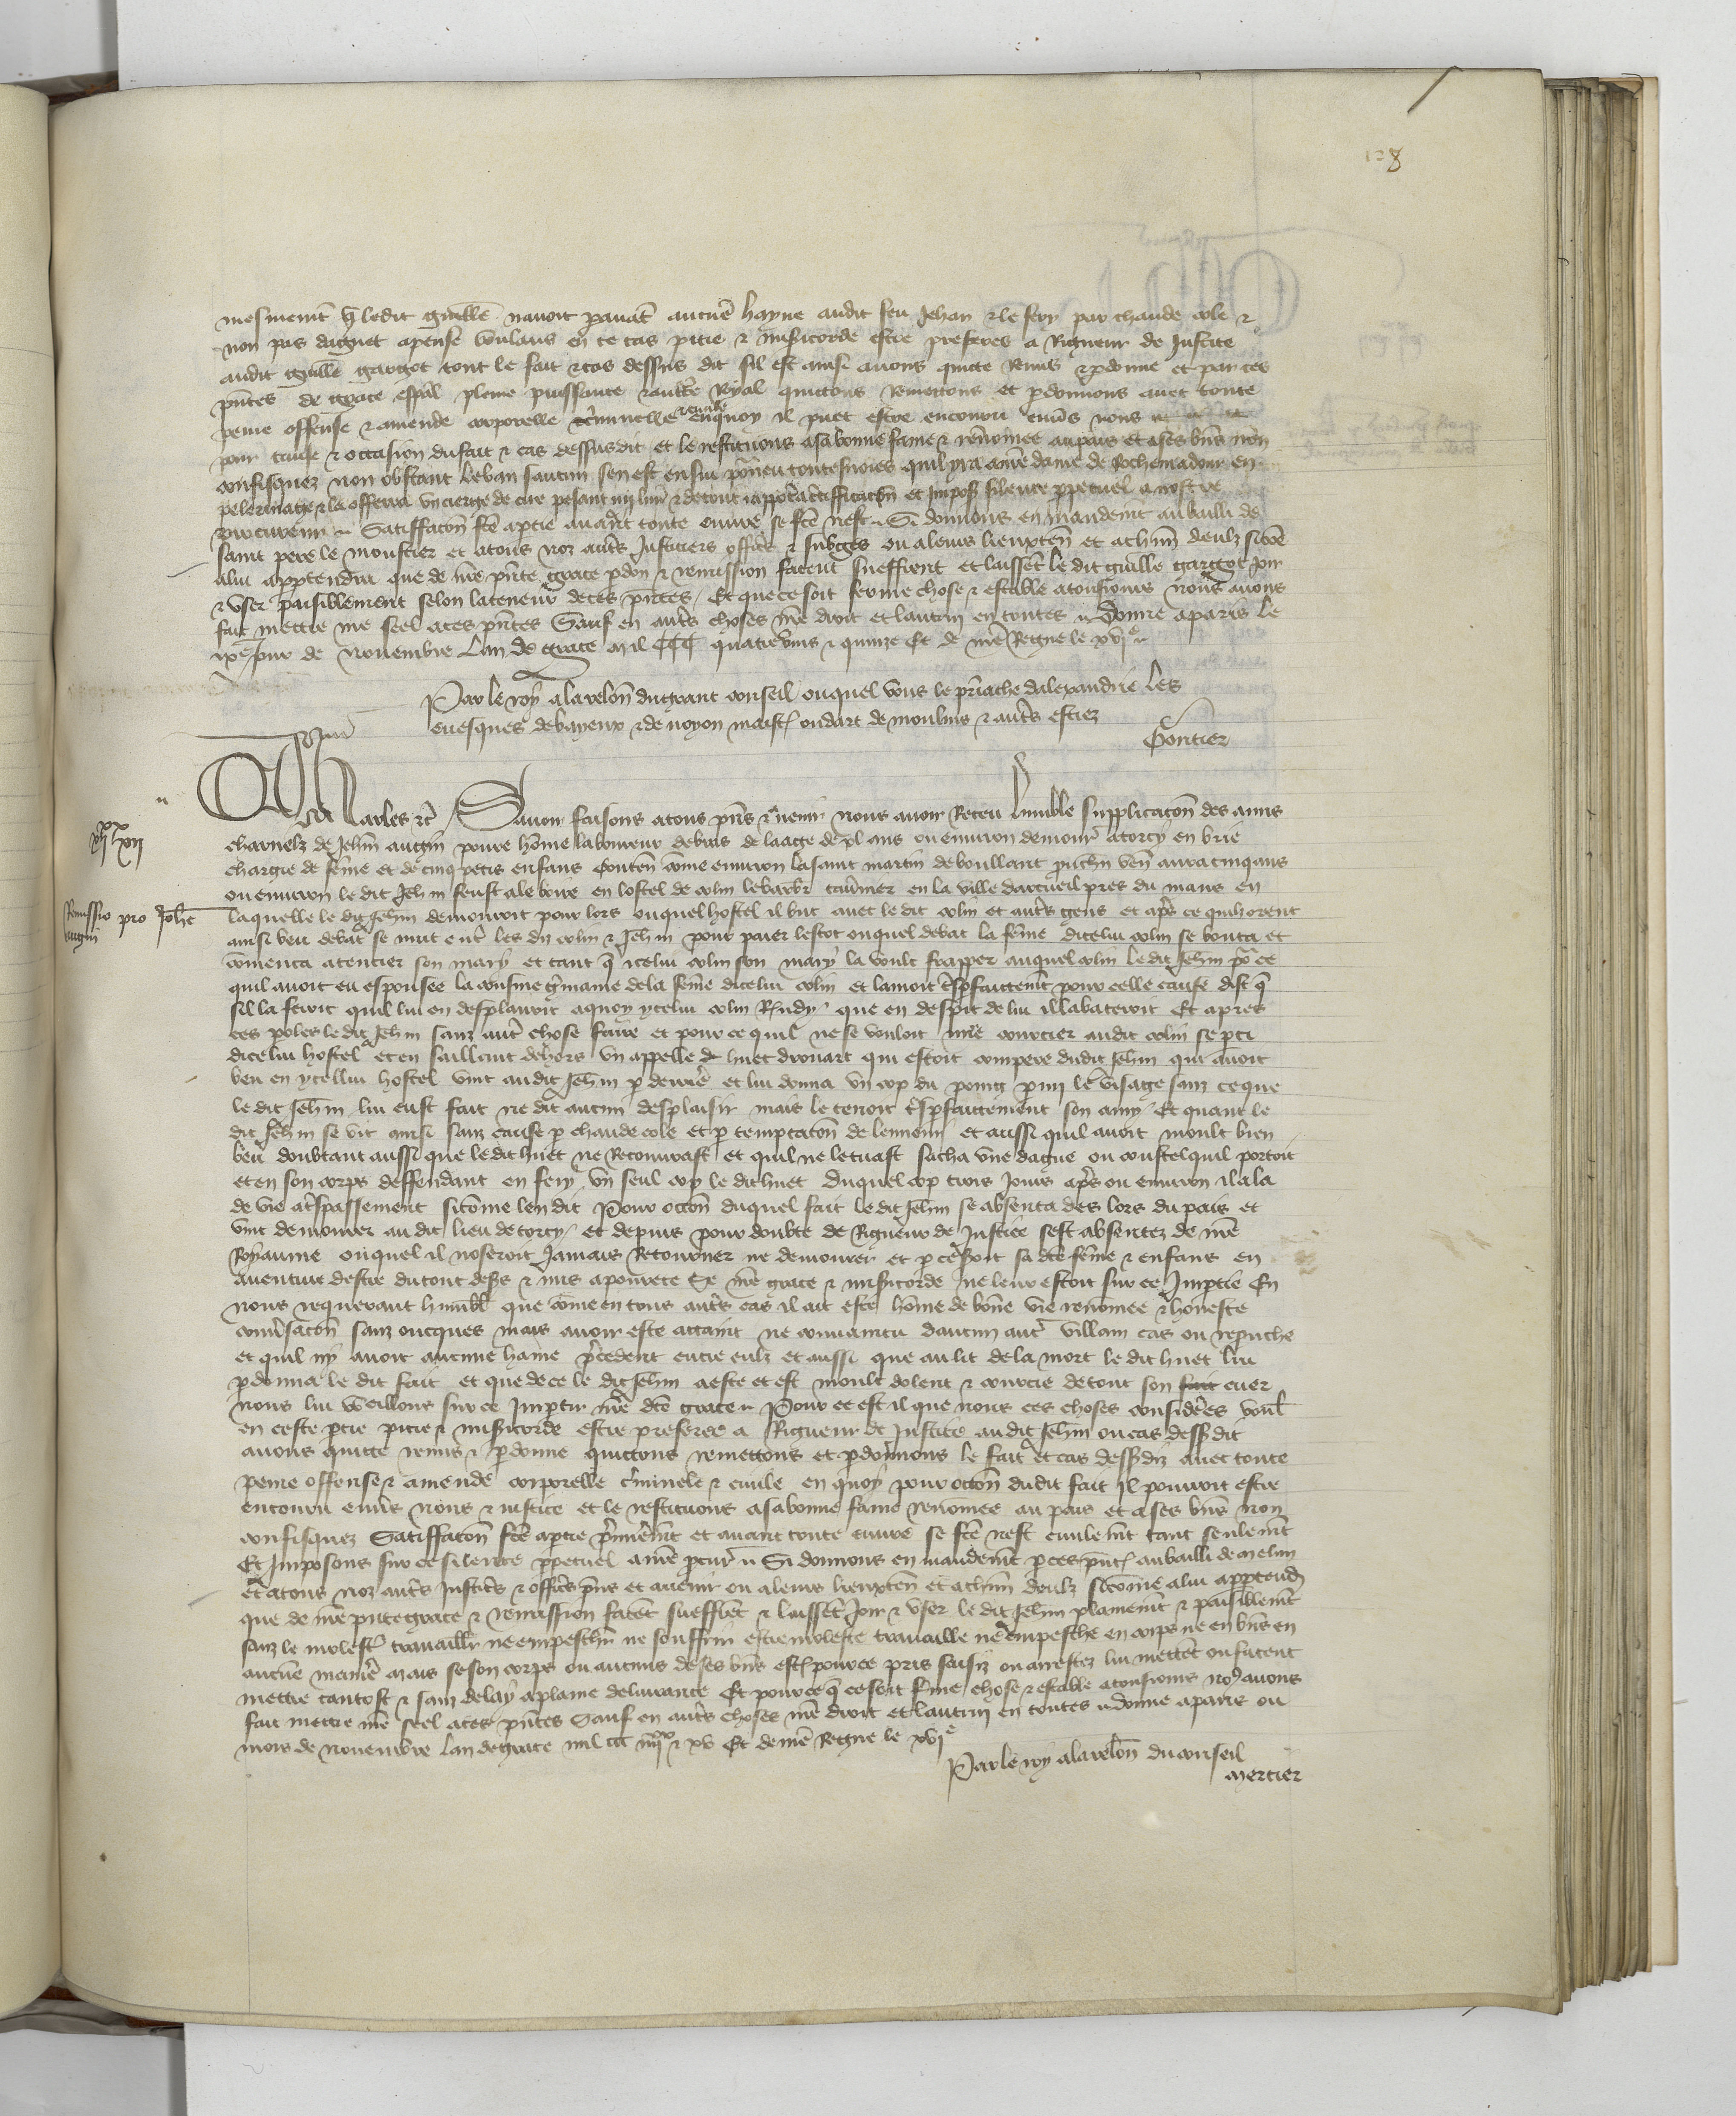 128
mesmemt q̃ ledit guille navoit pavãt aucuñe hayne audit feu Jehan & le fery par chaude cole &
non pas daguet apense voulans en ce cas pitie & misericorde estre preferes a Rigueur de Justice
audit guille gargot tout le fait & cas dessus dit sil est ainsi avons quicte Remis & pdonne et par ces
pñtes de grace espãl pleine puissance & auctẽ Royal quictons Remettons et pdonnons avec toute
peine offense & amende corporelle criminelle & civile enquoy il puet estre encouru envs nous
pour cause & occasion du fait & cas dessusdit et le restituons asa bonne fame & rẽnomee au pais et a ses bñs non
confisquez non obstant le ban saucun sen est ensui pourveu toutesvoies quil yra a ñre dame de Rochemadour en
pelerinage & la offrera un cierge de cire pesant iiij livr & de tout rapportera certifficacõn et Impos silence ppetuel a nostre
procureur Satiffacõn fcẽ aptie avant toute euvre se fcẽ nest Si donnons en mandemt au bailli de
saint pere le moustier et atous noz autr̃s Justiciers offic̃rs & subgẽs ou a leurs lieuxten̄ et achũn deulz sicõe
alui appartendra que de ñre pñte grace pdon & remission facent sueffrent et laissẽt le dit guille gargot Joir
& user paisiblement selon la teneur de ces pñtes Et que ce soit ferme chose & estable a tousiours nous avons
fait mettre ñre seel a ces pñtes Sauf en autr̃s choses ñre droit et lautrui en toutes Donne a paris le
ixe jour de Novembre Lan de grace Mil CCC quatrevins & quinze Et de ñre Regne le xvje
Par le roy a la relõn du grant conseil ouquel vous le p̃riache dalexandrie les
evesques de bayeux & de noyon maist oudart de moulins & autr̃s estiez
Gontier
Charles &c̃ Savoir faisons atous pñs & avenir nous avoir Receu humble supplicacõn des amis
charnelz de Jehñ augin povre hõme laboureur de bras de laage de xl ans ou environ demour̃ a torcy en brie
chargie de fẽme et de cinq petis enfans Conteñ cõme environ la saint martin de boullant prochñ veñ aura cinq ans
ou environ le dit Jehñ feust ale boire en lostel de colin le barbr tav̄nier en la ville darcueil pres du mans en
laquelle le dit Jehñ demouroit pour lors ouquel hostel il but avec le dit colin et autr̃s gens et apr̃s ce quilz orent
ainsi beu debat se mut entr̃ les diz colin & Jehñ pour paier lescot ouquel debat la fẽme dicelui colin se bouta et
cõmenca atencier son mary et tant q̃ icelui colin son mary la voult frapper auquel colin le dit Jehñ pour ce
quil avoit eu espousee la cousine g̃rmaine de la fẽme dicelui colin et lamoit tr̃spfaictemẽt pour celle cause dist q̃
sil la feroit quil lui en desplairoit aquoy ycelui colin Rñdy que en despit de lui il la bateroit Et apres
ces poles le dit Jehñ sanz autr̃ chose faire et pour ce quil ne se vouloit mie courcier audit colin se pti
dicelui hostel et en saillant dehors un appelle huet drouart qui estoit compere dudit Jehñ qui avoit
beu en ycellui hostel vint audit Jehñ p derr̃e et lui donna un cop du poing pmi le visage sanz ce que
le dit Jehñ lui eust fait ne dit aucun desplaisir mais le tenoit tr̃spfaictement son amy Et quant le
dit Jehñ se vit ainsi sanz cause p chaude cole et p temptacõn de lennemi et aussi quil avoit moult bien
beu doubtant aussi que le dit huet ne Recouvrast et quil ne le tuast sacha une dague ou coustel quil portoit
et en son corps deffendant en fery un seul cop le dit huet duquel cop trois jours apr̃s ou environ il ala
de vie a tr̃spassement sicõme len dit Pour occõn duquel fait le dit Jehñ se absenta des lors du pais et
vint demourer audit lieu de torcy et depuis pour doubte de Rigueur de Justice sest absentez de ñre
Royaume ouquel il noseroit Jamais Retourner ne demourer et p ce seroit sa dte fẽme & enfans en
aventure destre du tout desrs & mis a povrete Se ñre grace & misericorde ne leur estoit sur ce Impartie En
nous requerant humblẽ que cõme en tous autr̃s cas il ait este hõme de bõne vie renõmee & honeste
conv̄sacõn sanz oncques mais avoir este attaint ne convaincu daucun autr̃ villain cas ou reprouche
et quil ny avoit aucune haine pr̃cedent entre eulx et aussi que au lit de la mort le dit huet lui
pdonna le dit fait et que de ce le dit Jehñ a este et est moult dolent & courcie de tout son cuer
Nous lui vueillons sur ce Impartir ñre dcẽ grace Pour ce est il que nous ces choses considerees voul
en ceste ptie pitie & misericorde estre preferee a Rigueur de Justice audit Jehñ ou cas dessusdit
avons quicte remis & pdonne quictons remettons et pdonnons le fait et cas dessusdiz avec toute
peine offense & amende corporelle criminele & civile en quoy pour occõn dudit fait Il pourroit estre
encouru envs nous & justice et le restituons a sa bonne fame renõmee au pais et a ses bñs non
confisquez Satiffacõn fcẽ a ptie pr̃mieremt et avant toute euvre se fcẽ nest civilemt tant seulemt
Et Imposons sur ce silence ppetuel a ñre pcur̃ Si donnons en mandemt p ces pñt au bailli de melun
et atous noz autr̃s Justic̃rs & offic̃rs pñs et avenir ou a leurs lieuxten̄ et achũn deulz sicõme a lui appartendr
que de ñre pñte grace & remission facẽt sueffrẽt & laissẽt Joir & user le dit Jehñ plainemt & paisiblemt
sanz le molest travaillr̃ ne empeschr̃ ne souffrir estre moleste travaille ne empesche en corps ne en bñs en
aucuñe maniere Mais se son corps ou aucuns de ses bñs est pour ce pris saisiz ou arrestez lui mettẽt ou facent
mettre tantost & sanz delay a plaine delivrance Et pour ce q̃ ce soit ferme chose & estable a tousiours nous avons
fait mettre ñre seel a ces pñtes Sauf en autr̃s choses ñre droit et lautrui en toutes donne a paris ou
mois de Novembre Lan de grace mil ccc iiijxx & xv Et de ñre Regne le xvje
Par le roy a la relõn du conseil
Mercier
Remissio pro Johẽ
augin